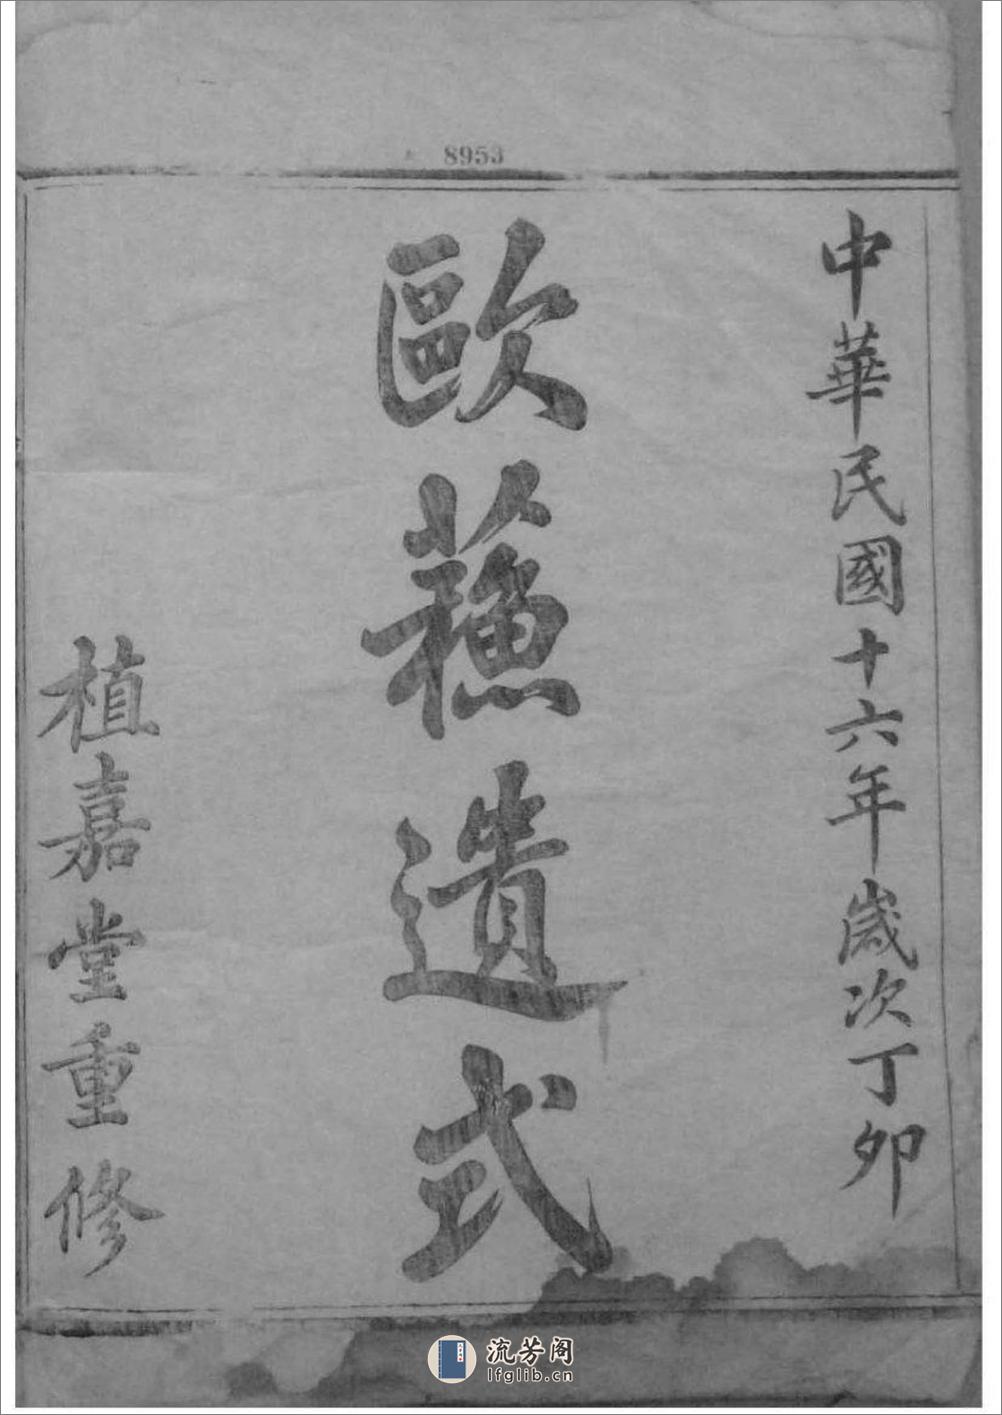 8953
中華民國十六年歲次丁卯
歐蘓遺式
植嘉堂重修
流芳阁
lfglib.cn